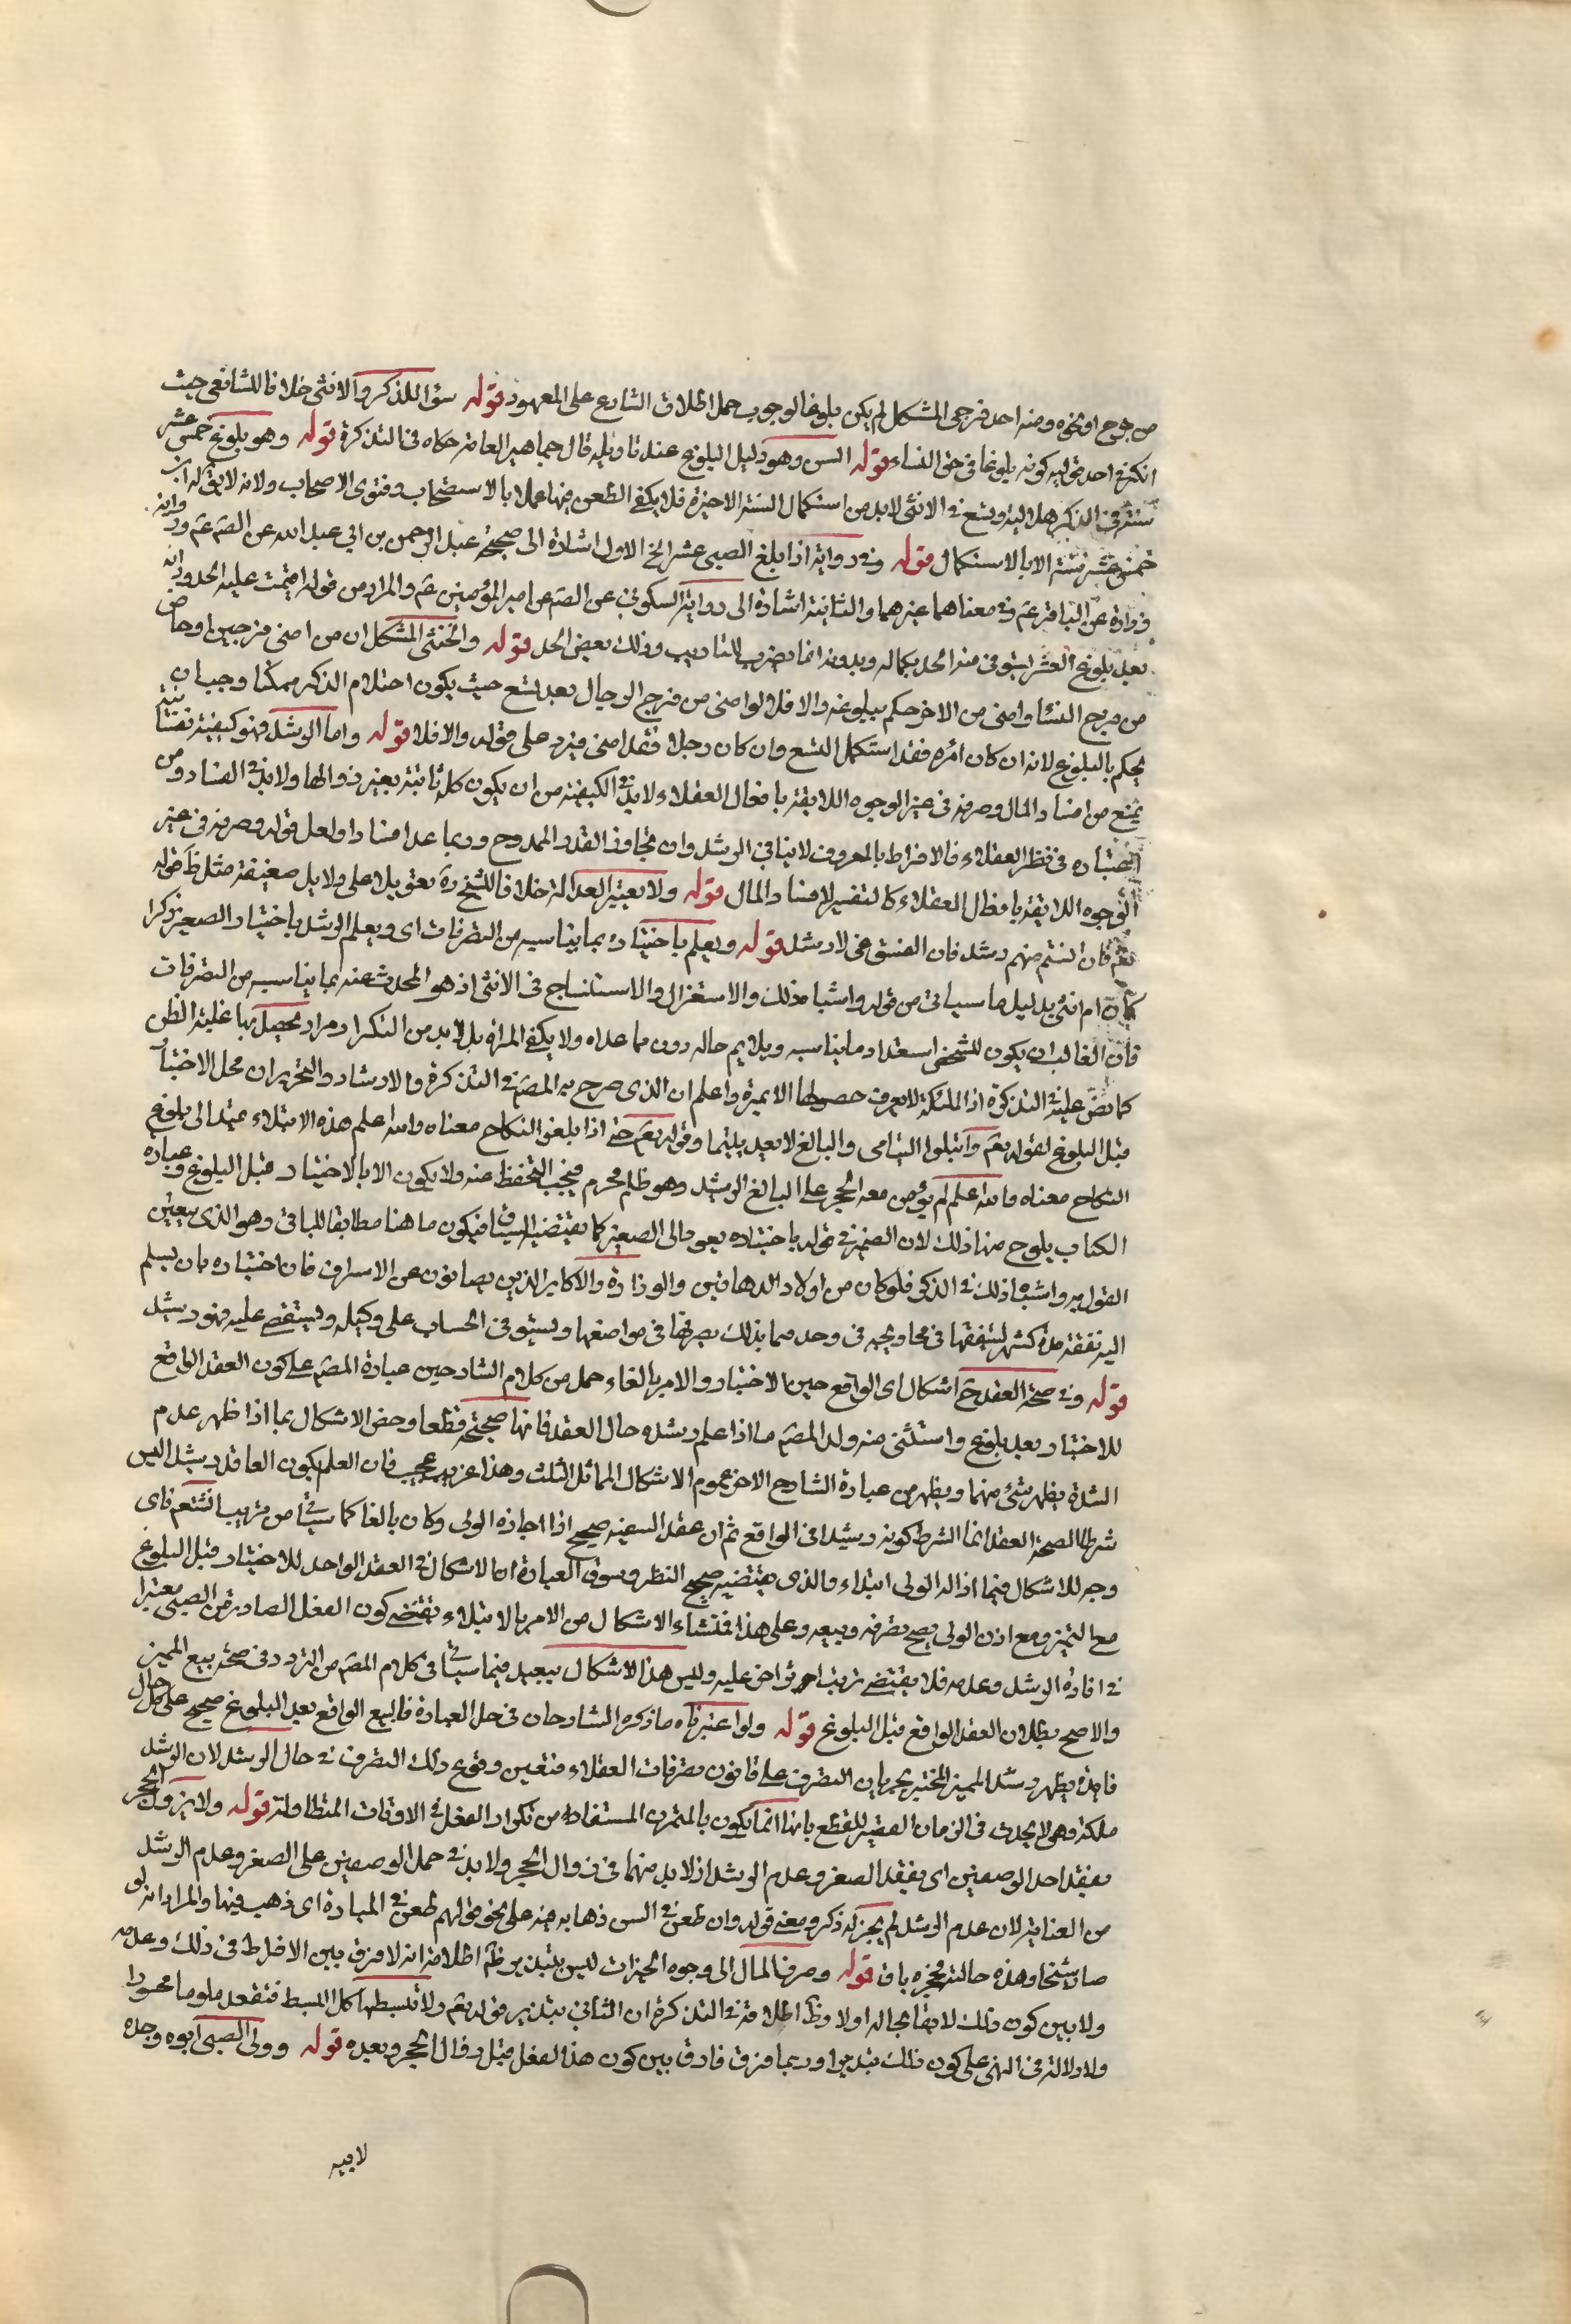 من جرح او نحوه ومنه احد فرجي المشكل لم يكن بلوغا لوجوب حمل اطلاق الشارع على المعهود قوله سواء للذكر والانثى خلافا للشافعي حيث
انكر في احد قوليه كونه بلوغا في حق النساء قوله السن وهو دليل البلوغ عند تاويله قال جماهير العامة حكاه في التذكرة قوله وهو بلوغ خمس عشر
سنة في الذكر هلالية وتسع في الانثى لابد من استكمال السنة الاخيرة فلا يكفي الطعن فيها عملا بالاستصحاب وفتوى الاصحاب ولانه لا يق له ابن
خمس عشر سنة الا بالاستكمال قوله وفي رواية اذا بلغ الصبي عشرا الخ الاولى اشارة الى صحيحة عبد الرحمن بن ابي عبد الله عن الصم عم ورواية
زرارة عن الباقر عم وفي معناهما غيرهما والثانية اشارة الى رواية السكوني عن الصم عن امير المؤمنين عم والمراد من قوله اقيمت عليه الحدود انه
بعد بلوغ العشر يستوفى منه الحد بكماله وبدونه انما يضرب للتاديب وذلك بعض الحد قوله والخنثى المشكل ان من امنى من فرجين او حاض
من فرج النساء وامنى من الاخر حكم ببلوغه والا فلا لو امنى من فرج الرجال بعد تسع حيث يكون احتلام الذكر ممكنا وجب ان
يحكم بالبلوغ لانه ان كان امرأة فقد استكمل التسع وان كان رجلا فقد امنى فيرد على قوله والا فلا قوله واما الرشد فهو كيفية نفسانية
يمنع من افساد المال وصرفه في غير الوجوه اللايقة بافعال العقلاء لابد في الكيفية من ان يكون ملكة ثابتة يعسر زوالها ولابد في الفساد من
اعتباره في نظر العقلاء فالافراط بالمعروف لا ينافي الرشد وان تجاوز القدر الممدوح وربما عد افسادا ولعل قوله وصرفه في غير
الوجوه اللايقة بافعال العقلاء كالتفسير لافساد المال قوله ولا يعتبر العدالة خلافا للشيخ ره تعويلا على دلايل ضعيفة مثل ظ قوله
تعم فان انستم منهم رشد فان الفسق غي لا رشد قوله ويعلم باختباره بما يناسبه من التصرفات اي ويعلم الرشد باختبار الصغير ذكرا
كان ام انثى بدليل ما سياتي من قوله واشباه ذلك والاستغزال والاستنساج في الانثى اذ هو المحدث عنه بما يناسبه من التصرفات
فان الغالب ان يكون للشخص استعداد ما يناسبه ويلايم حاله دون ما عداه ولا يكفي المرة بل لا بد من التكرار مرارا يحصل بها غلبة الظن
كما نص عليه في التذكرة اذ الملكة لا يعرف حصولها الا بمرة واعلم ان الذي صرح به المصم في التذكرة والارشاد والتحرير ان محل الاختبار
قبل البلوغ لقوله تعم وابتلوا اليتامى والبالغ لا يعد يتيما وقوله تعم حتى اذا بلغوا النكاح معناه والله اعلم هذه الابتلاء يمتد الى بلوغ
النكاح معناه والله اعلم لم يؤمن معه الحجر على البالغ الرشيد وهو ظلم محرم فيجب التحفظ منه ولا يكون الا بالاختبار قبل البلوغ وعبارة
الكتاب يلوح منها ذلك لان الضمير في قوله باختباره يعود الى الصغير كما يقتضيه السياق فيكون ما هنا مطابقا للباقي وهو الذي يتعين
القول به واشباه ذلك في الذكر فلو كان من اولاد الدهاقين والوزارة والاكابر الذين يصانون عن الاسراف فان اختباره بان يسلم
اليه نفقة مدة كشهر لينفقها في محاويجه في وحد مما بذلك يصرفها في مواضعها ويستوفي الحساب على وكيله ويستقصي عليه فهو رشيد
قوله وفي صحة العقد ح اشكال اي الواقع حين الاختبار والامر بالغاء حمل من كلام الشارحين عبارة المصم على كون العقد الواقع
للاختبار بعد بلوغ واستثنى منه ولد المصم ما اذا علم رشده حال العقد فانها صحيحة قطعا وخص الاشكال بما اذا ظهر عدم
الشدة يظهر شئ منهما ويظهر من عبارة الشارح الاخر عموم الاشكال المسائل الثلث وهذا غريب عجيب فان العلم بكون العاقد رشيد ليس
شرطا لصحة العقد انما الشرط كونه رشيدا في الواقع ثم ان عقد السفيه صحيح اذا اجازه الولي وكان بالغا كما سياتي من قريب انشتعم فاي
وجه للاشكال فيما اذا له الولي ابتداء والذي يقتضيه صحيح النظر وسوق العبارة ان الاشكال في العقد الواحد للاختبار قبل البلوغ
مع التميز ومع اذن الولي يصح تصرفه وبيعه وعلى هذا فمنشاء الاشكال من الامر بالابتلاء يقتضي كون الفعل الصادر من الصبي معتبرا
في افادة الرشد وعدمه فلا يقتضي ترتب امر اخر عليه وليس هذا الاشكال ببعيد فيما سياتي في كلام المصم من التردد في صحة بيع المميز
والاصح بطلان العقد الواقع قبل البلوغ قوله ولو اعتبرناه ما ذكره الشارحان في حل العبارة فالبيع الواقع بعد البلوغ صحيح على كل حال
فانه يظهر رشد المميز المختبر بجريان التصرف على قانون تصرفات العقلاء فتعين وقوع ذلك التصرف في حال الرشد لان الرشد
ملكة وهي لا يحدث في الزمان القصير للقطع بانها انما يكون بالتمرن المستفاد من تكرار الفعل في الاوقات المتطاولة قوله ولا يزول الحجر
بفقد احد الوصفين اي بفقد الصغر وعدم الرشد اذ لابد منهما في زوال الحجر ولابد في حمل الوصفين على الصغر وعدم الرشد
من العناية لان عدم الرشد لم يجز له ذكر ومعنى قوله وان طعن في السن ذهابه فيه على نحو قولهم طعن في المبارة اي ذهب فيها والمراد انه لو
صار شيخا وهذه حالته فحجره باق قوله وصرف المال الى وجوه الخيرات ليس بتبذير ظ اطلاقه انه لا فرق بين الافراط في ذلك وعدمه
ولا بين كون ذلك لايقا بحاله اولا وظ اطلاقه في التذكرة ان الثاني تبذير قوله تعم ولا تبسطها كل البسط فتقعد ملوما محسورا
ولا دلالة في النهي على كون ذلك تبذيرا وربما فرق فارق بين كون هذا الفعل قبل زوال الحجر وبعده قوله وولي الصبي ابوه وجده
لابيه